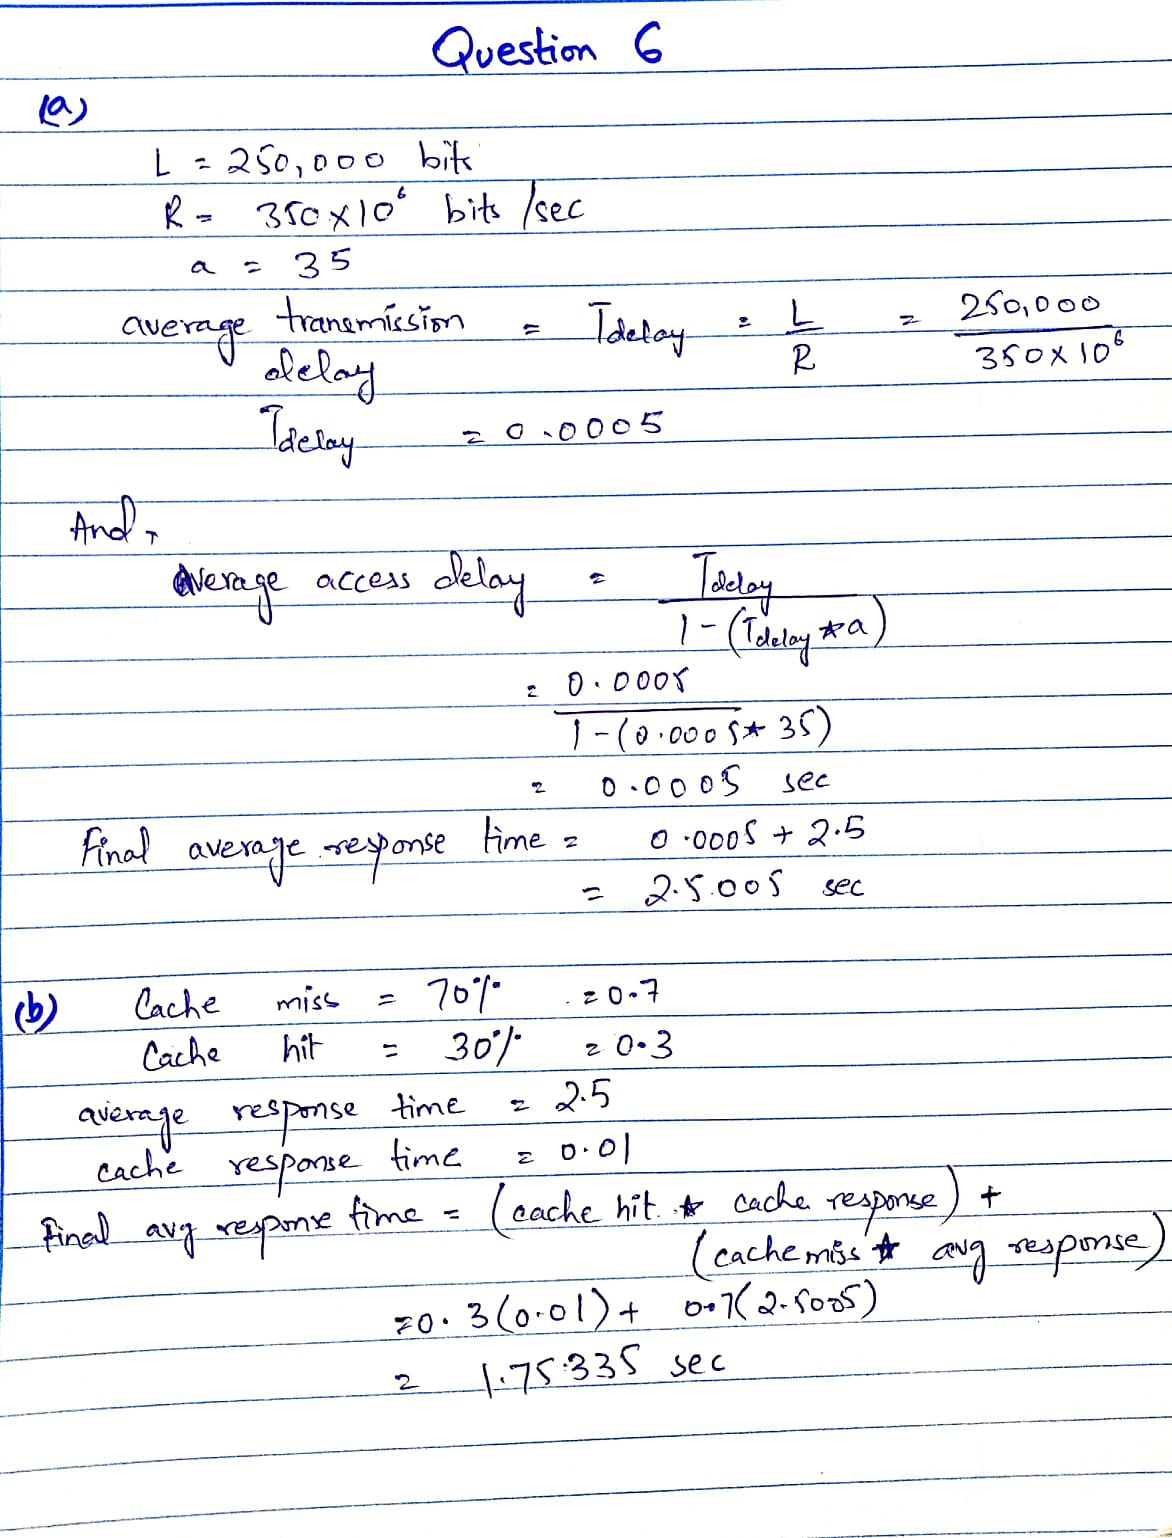 Question 6
(a)
L = 250,000 bits
R = 350 x 10^6 bits /sec
a = 35
average transmission delay = Tdelay = L / R = 250,000 / 350 x 10^6
Tdelay = 0.0005
And,
Average access delay = Tdelay / 1 - (Tdelay * a)
= 0.0005 / 1 - (0.0005 * 35)
= 0.0005 sec
final average response time = 0.0005 + 2.5
= 2.5.005 sec
(b) Cache miss = 70% = 0.7
Cache hit = 30% = 0.3
average response time = 2.5
cache response time = 0.01
final avg response time = (cache hit * cache response) +
(cache miss * avg response)
= 0.3(0.01) + 0.7(2.5005)
= 1.75.335 sec